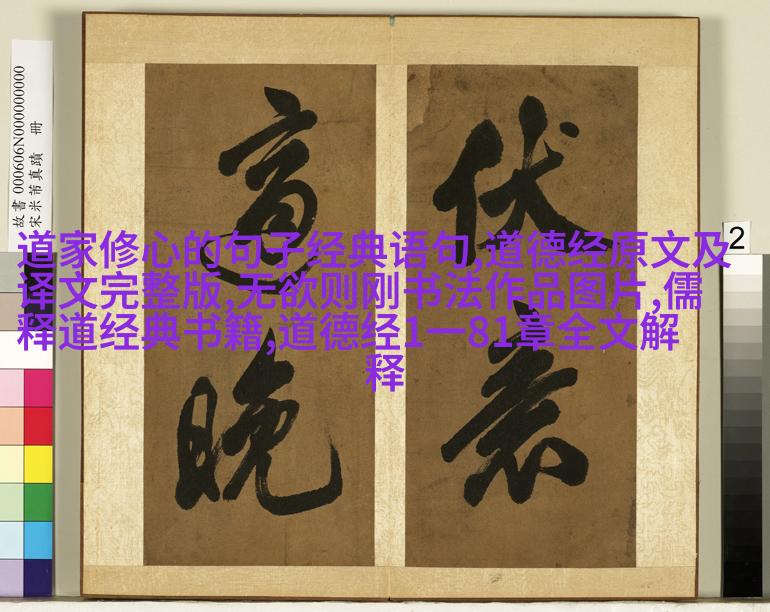 道家修心的句子经典语句,道德经原文及
译文完整版,无欲则刚书法作品图片,儒
释道经典书籍,道德经1一81章全文解
释
故書 000606N000000000
宋米芾真蹟　冊
2
伏
晚